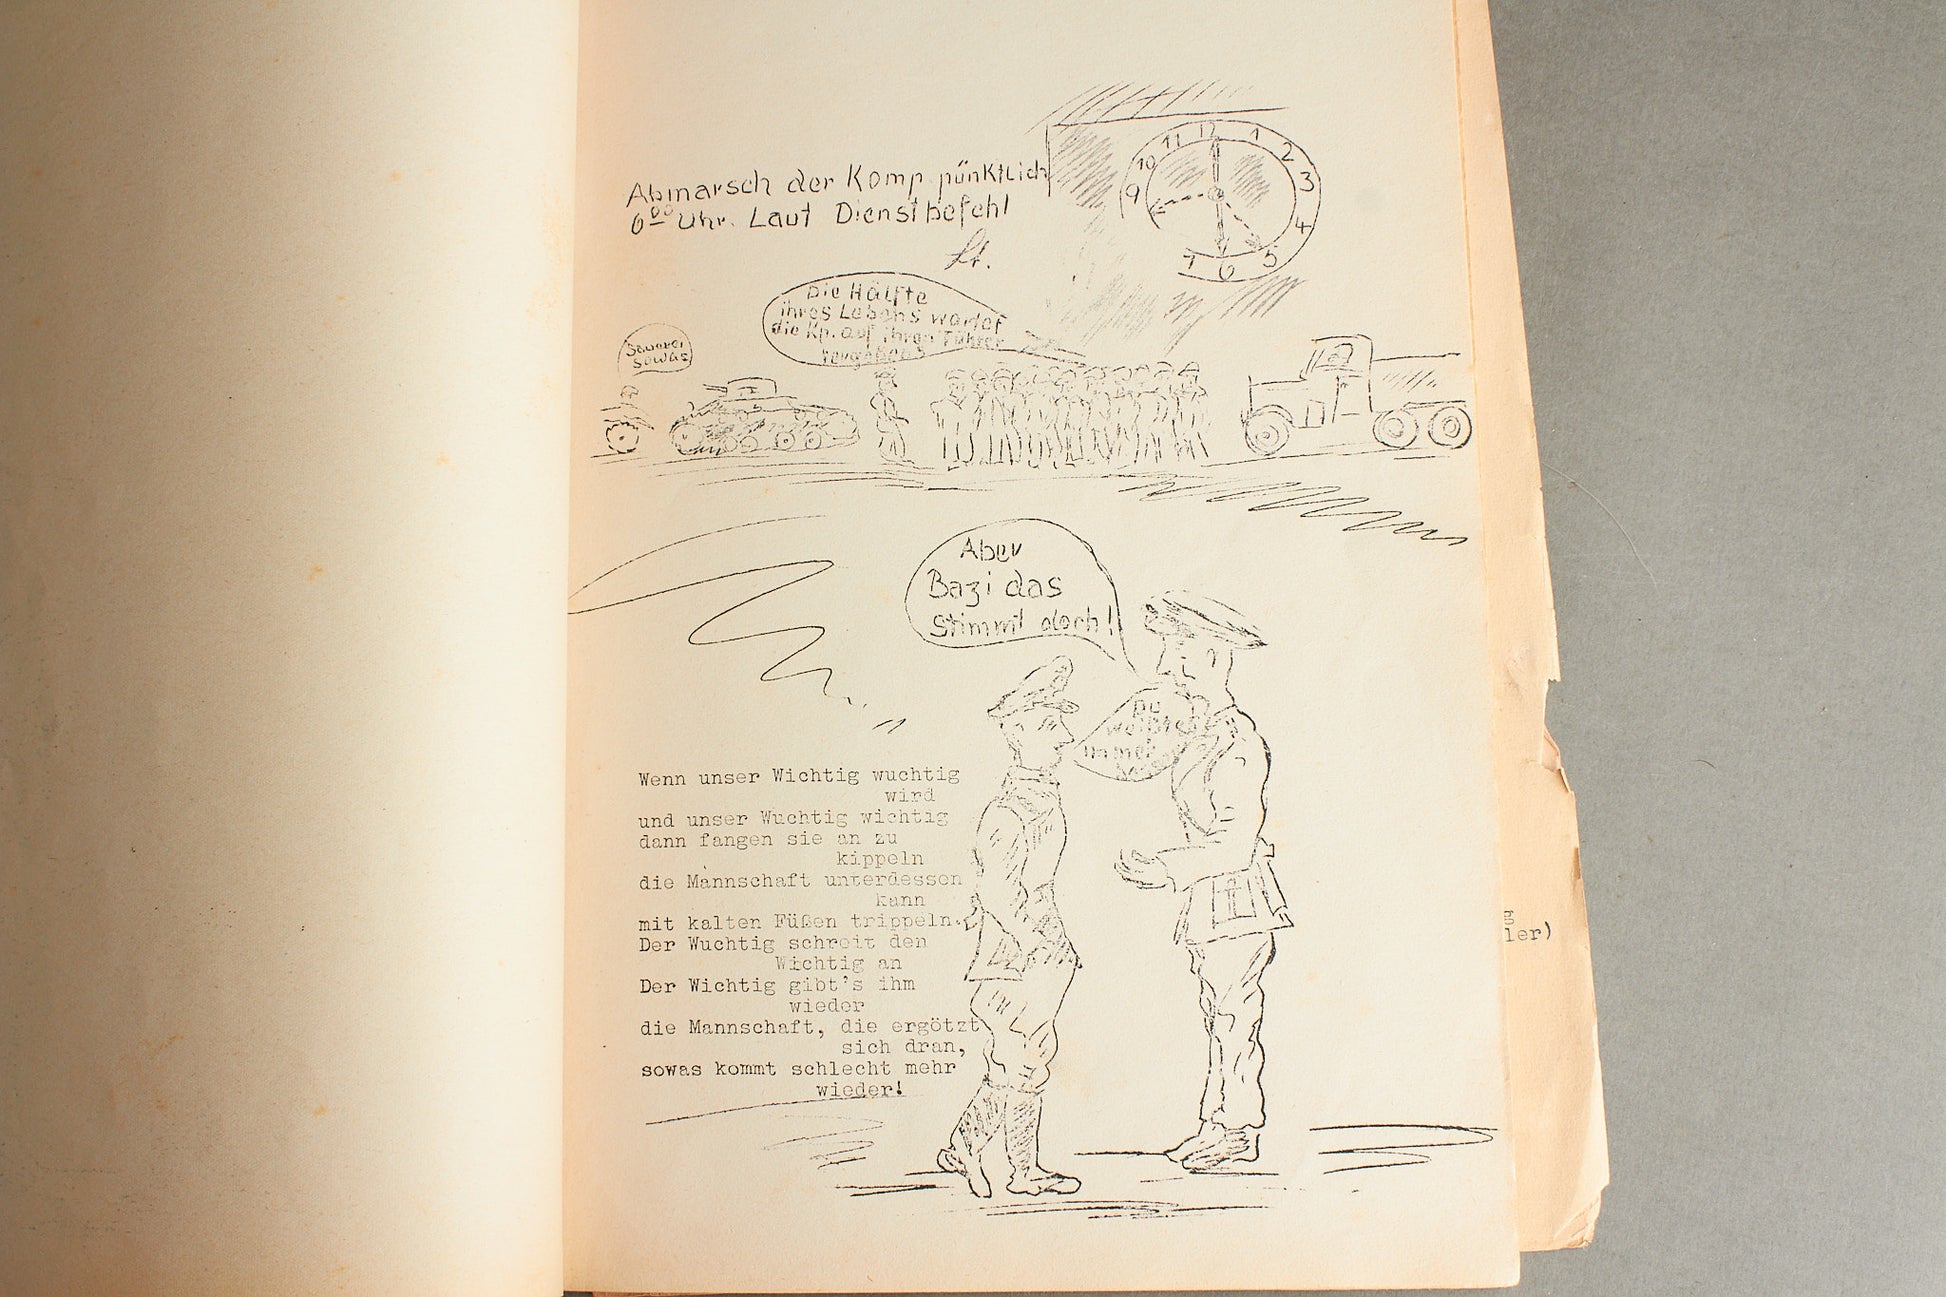 Abmarsch der Komp. pünktlich
6⁰⁰ Uhr. Laut Dienstbefehl
Lt.
11 12 1
10 2
9 3
4
7 6 5
Die Hälfte
ihres Lebens wartet
die Kp. auf ihren Führer
vergebens
Sauerei
Sowas
Aber
Bazi das
Stimmt doch!
Du
immer
Wenn unser Wichtig wuchtig
wird
und unser Wuchtig wichtig
dann fangen sie an zu
kippeln
die Mannschaft unterdessen
kann
mit kalten Füßen trippeln.
Der Wuchtig schreit den
Wichtig an
Der Wichtig gibt's ihm
wieder
die Mannschaft, die ergötzt
sich dran,
sowas kommt schlecht mehr
wieder!
g
ler)